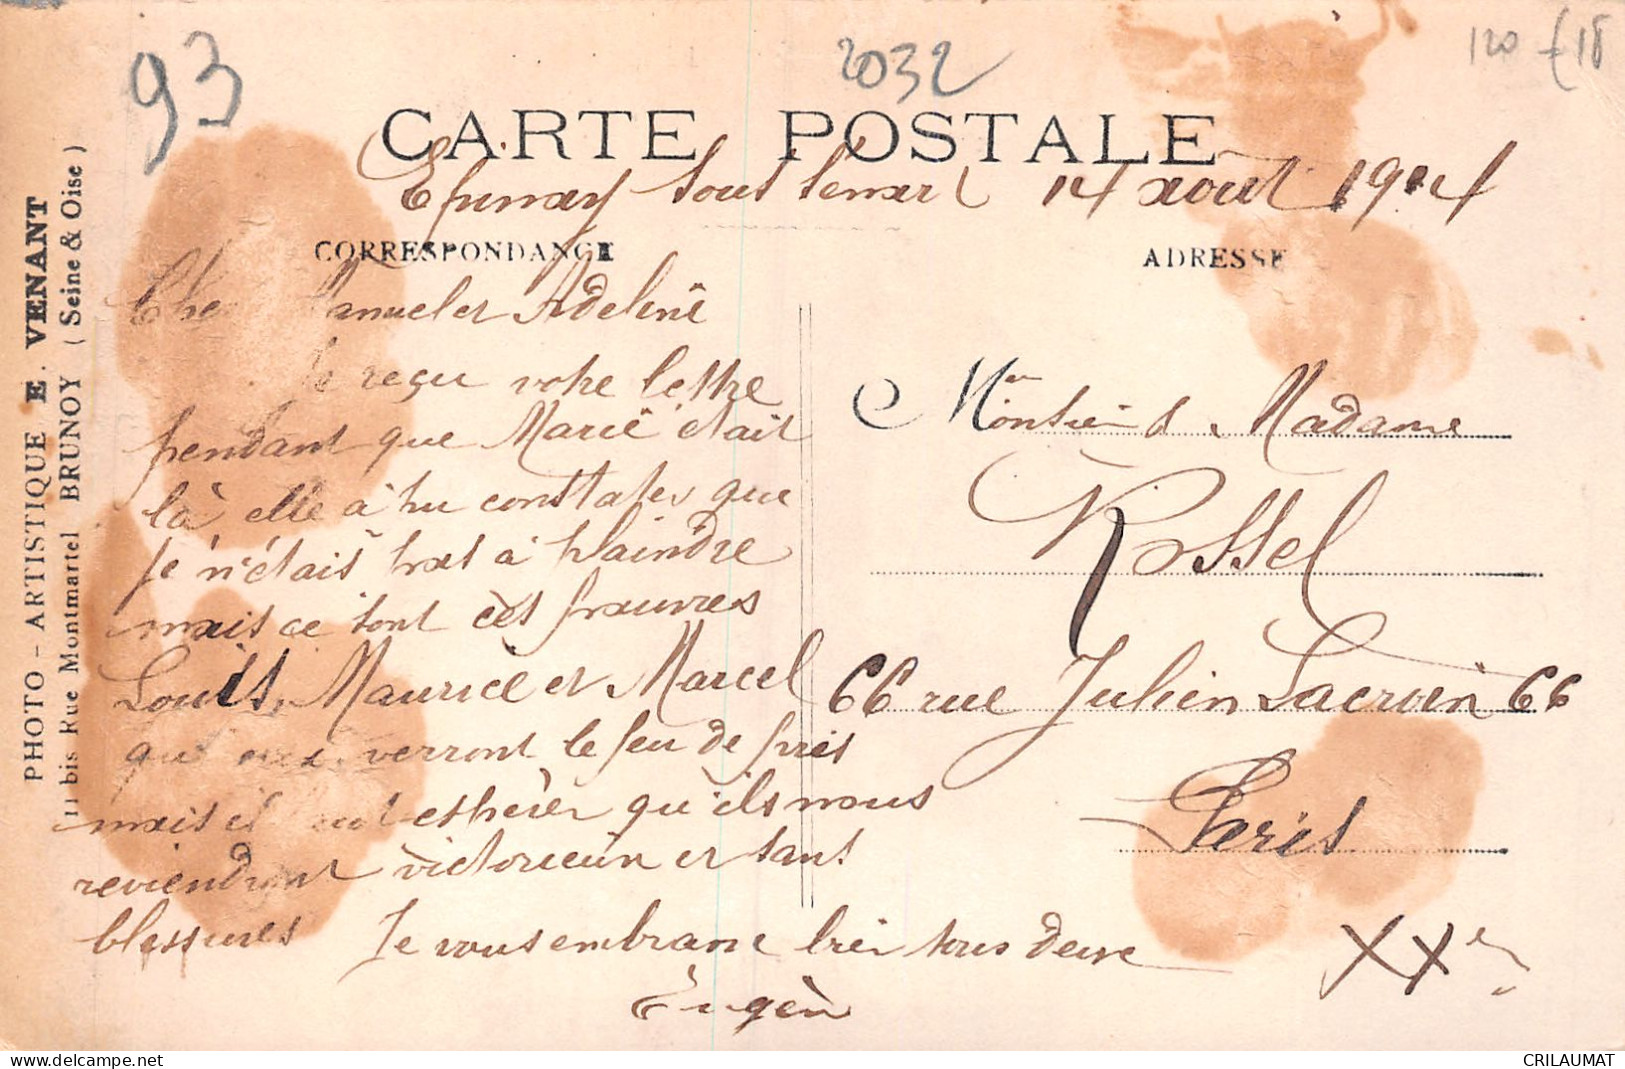 93
2032
120 £18
CARTE POSTALE
Epinay sous Senart 14 aout 1914
CORRESPONDANCE
ADRESSE
PHOTO - ARTISTIQUE E. VENANT
11 bis Rue Montmartel BRUNOY ( Seine & Oise )
Manuel et Adeline
reçu votre lettre
pendant que Marie était
là elle à pu constater que
je n'étais pas à plaindre
mais ce sont cès pauvres
Louis, Maurice et Marcel
qui eux verront le feu de près
mais il faut espèrer qu'ils nous
reviendront victorieux et sans
blessures Je vous embrasse bien tous deux
Eugèn
Monsieur & Madame
Rossel
66 rue Julien Lacroix 66
Paris
XXe
CRILAUMAT